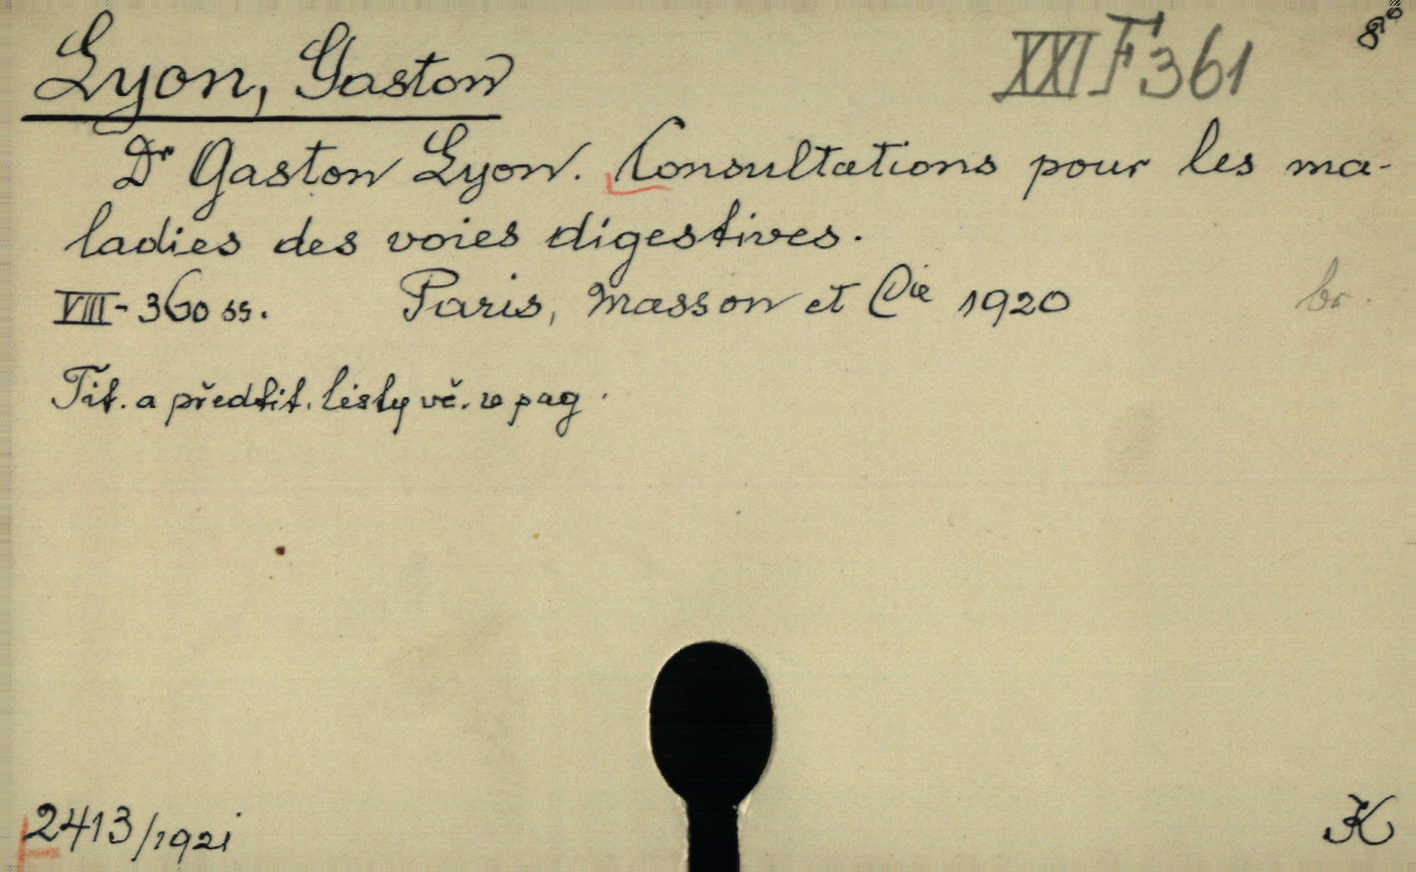 Lyon, Gaston
XXI F 361
8°
Dr Gaston Lyon. Consultations pour les ma-
ladies des voies digestives.
VIII - 360 ss. Paris, Masson et Cie 1920
br.
Tit. a předtit. listy vč. v pag.
2413/1921
K